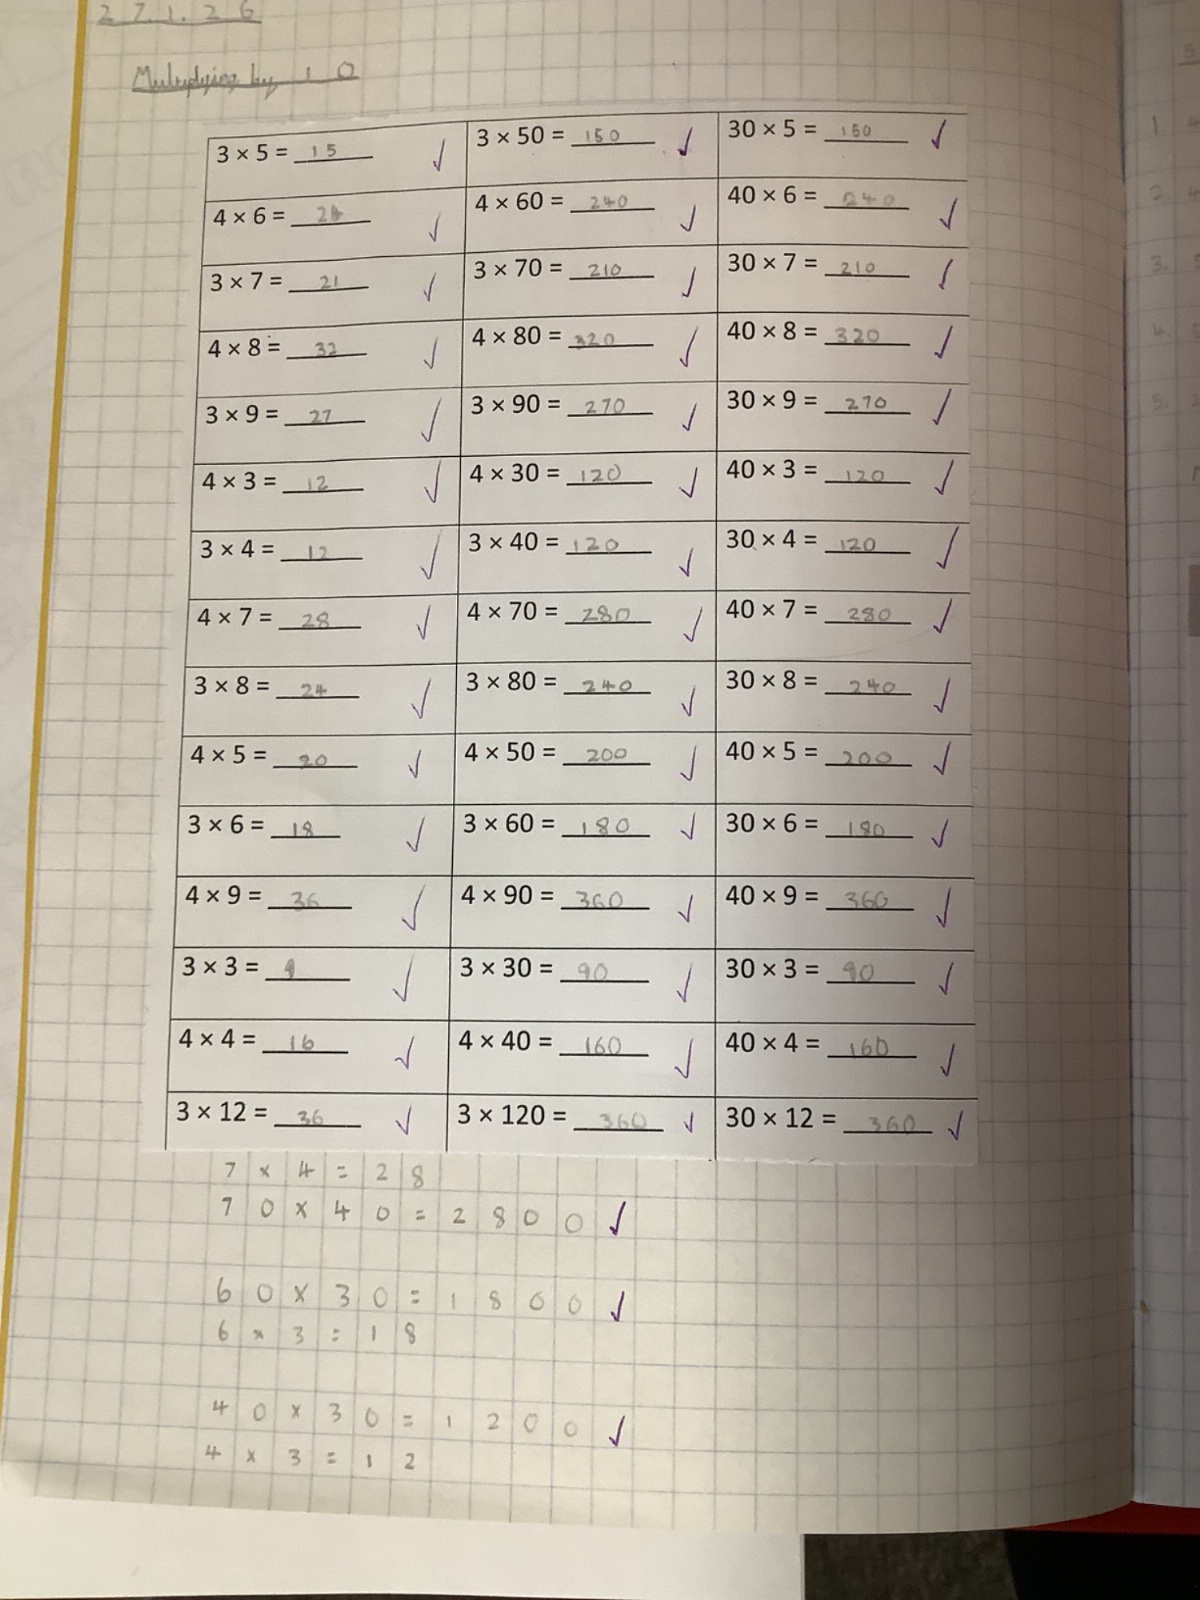 27.1.26
Multiplying by 10
3 × 5 = 15 ✓ 3 × 50 = 150 ✓ 30 × 5 = 150 ✓
4 × 6 = 24 ✓ 4 × 60 = 240 ✓ 40 × 6 = 240 ✓
3 × 7 = 21 ✓ 3 × 70 = 210 ✓ 30 × 7 = 210 ✓
4 × 8 = 32 ✓ 4 × 80 = 320 ✓ 40 × 8 = 320 ✓
3 × 9 = 27 ✓ 3 × 90 = 270 ✓ 30 × 9 = 270 ✓
4 × 3 = 12 ✓ 4 × 30 = 120 ✓ 40 × 3 = 120 ✓
3 × 4 = 12 ✓ 3 × 40 = 120 ✓ 30 × 4 = 120 ✓
4 × 7 = 28 ✓ 4 × 70 = 280 ✓ 40 × 7 = 280 ✓
3 × 8 = 24 ✓ 3 × 80 = 240 ✓ 30 × 8 = 240 ✓
4 × 5 = 20 ✓ 4 × 50 = 200 ✓ 40 × 5 = 200 ✓
3 × 6 = 18 ✓ 3 × 60 = 180 ✓ 30 × 6 = 180 ✓
4 × 9 = 36 ✓ 4 × 90 = 360 ✓ 40 × 9 = 360 ✓
3 × 3 = 9 ✓ 3 × 30 = 90 ✓ 30 × 3 = 90 ✓
4 × 4 = 16 ✓ 4 × 40 = 160 ✓ 40 × 4 = 160 ✓
3 × 12 = 36 ✓ 3 × 120 = 360 ✓ 30 × 12 = 360 ✓
7 × 4 = 28
70 × 40 = 2800 ✓
60 × 30 = 1800 ✓
6 × 3 = 18
40 × 30 = 1200 ✓
4 × 3 = 12
1.
2.
3.
4.
5.